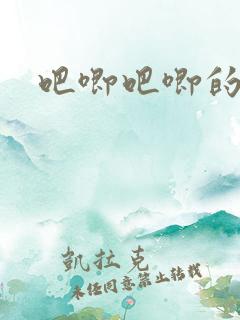 吧唧吧唧的
凱拉克
未经同意禁止转载